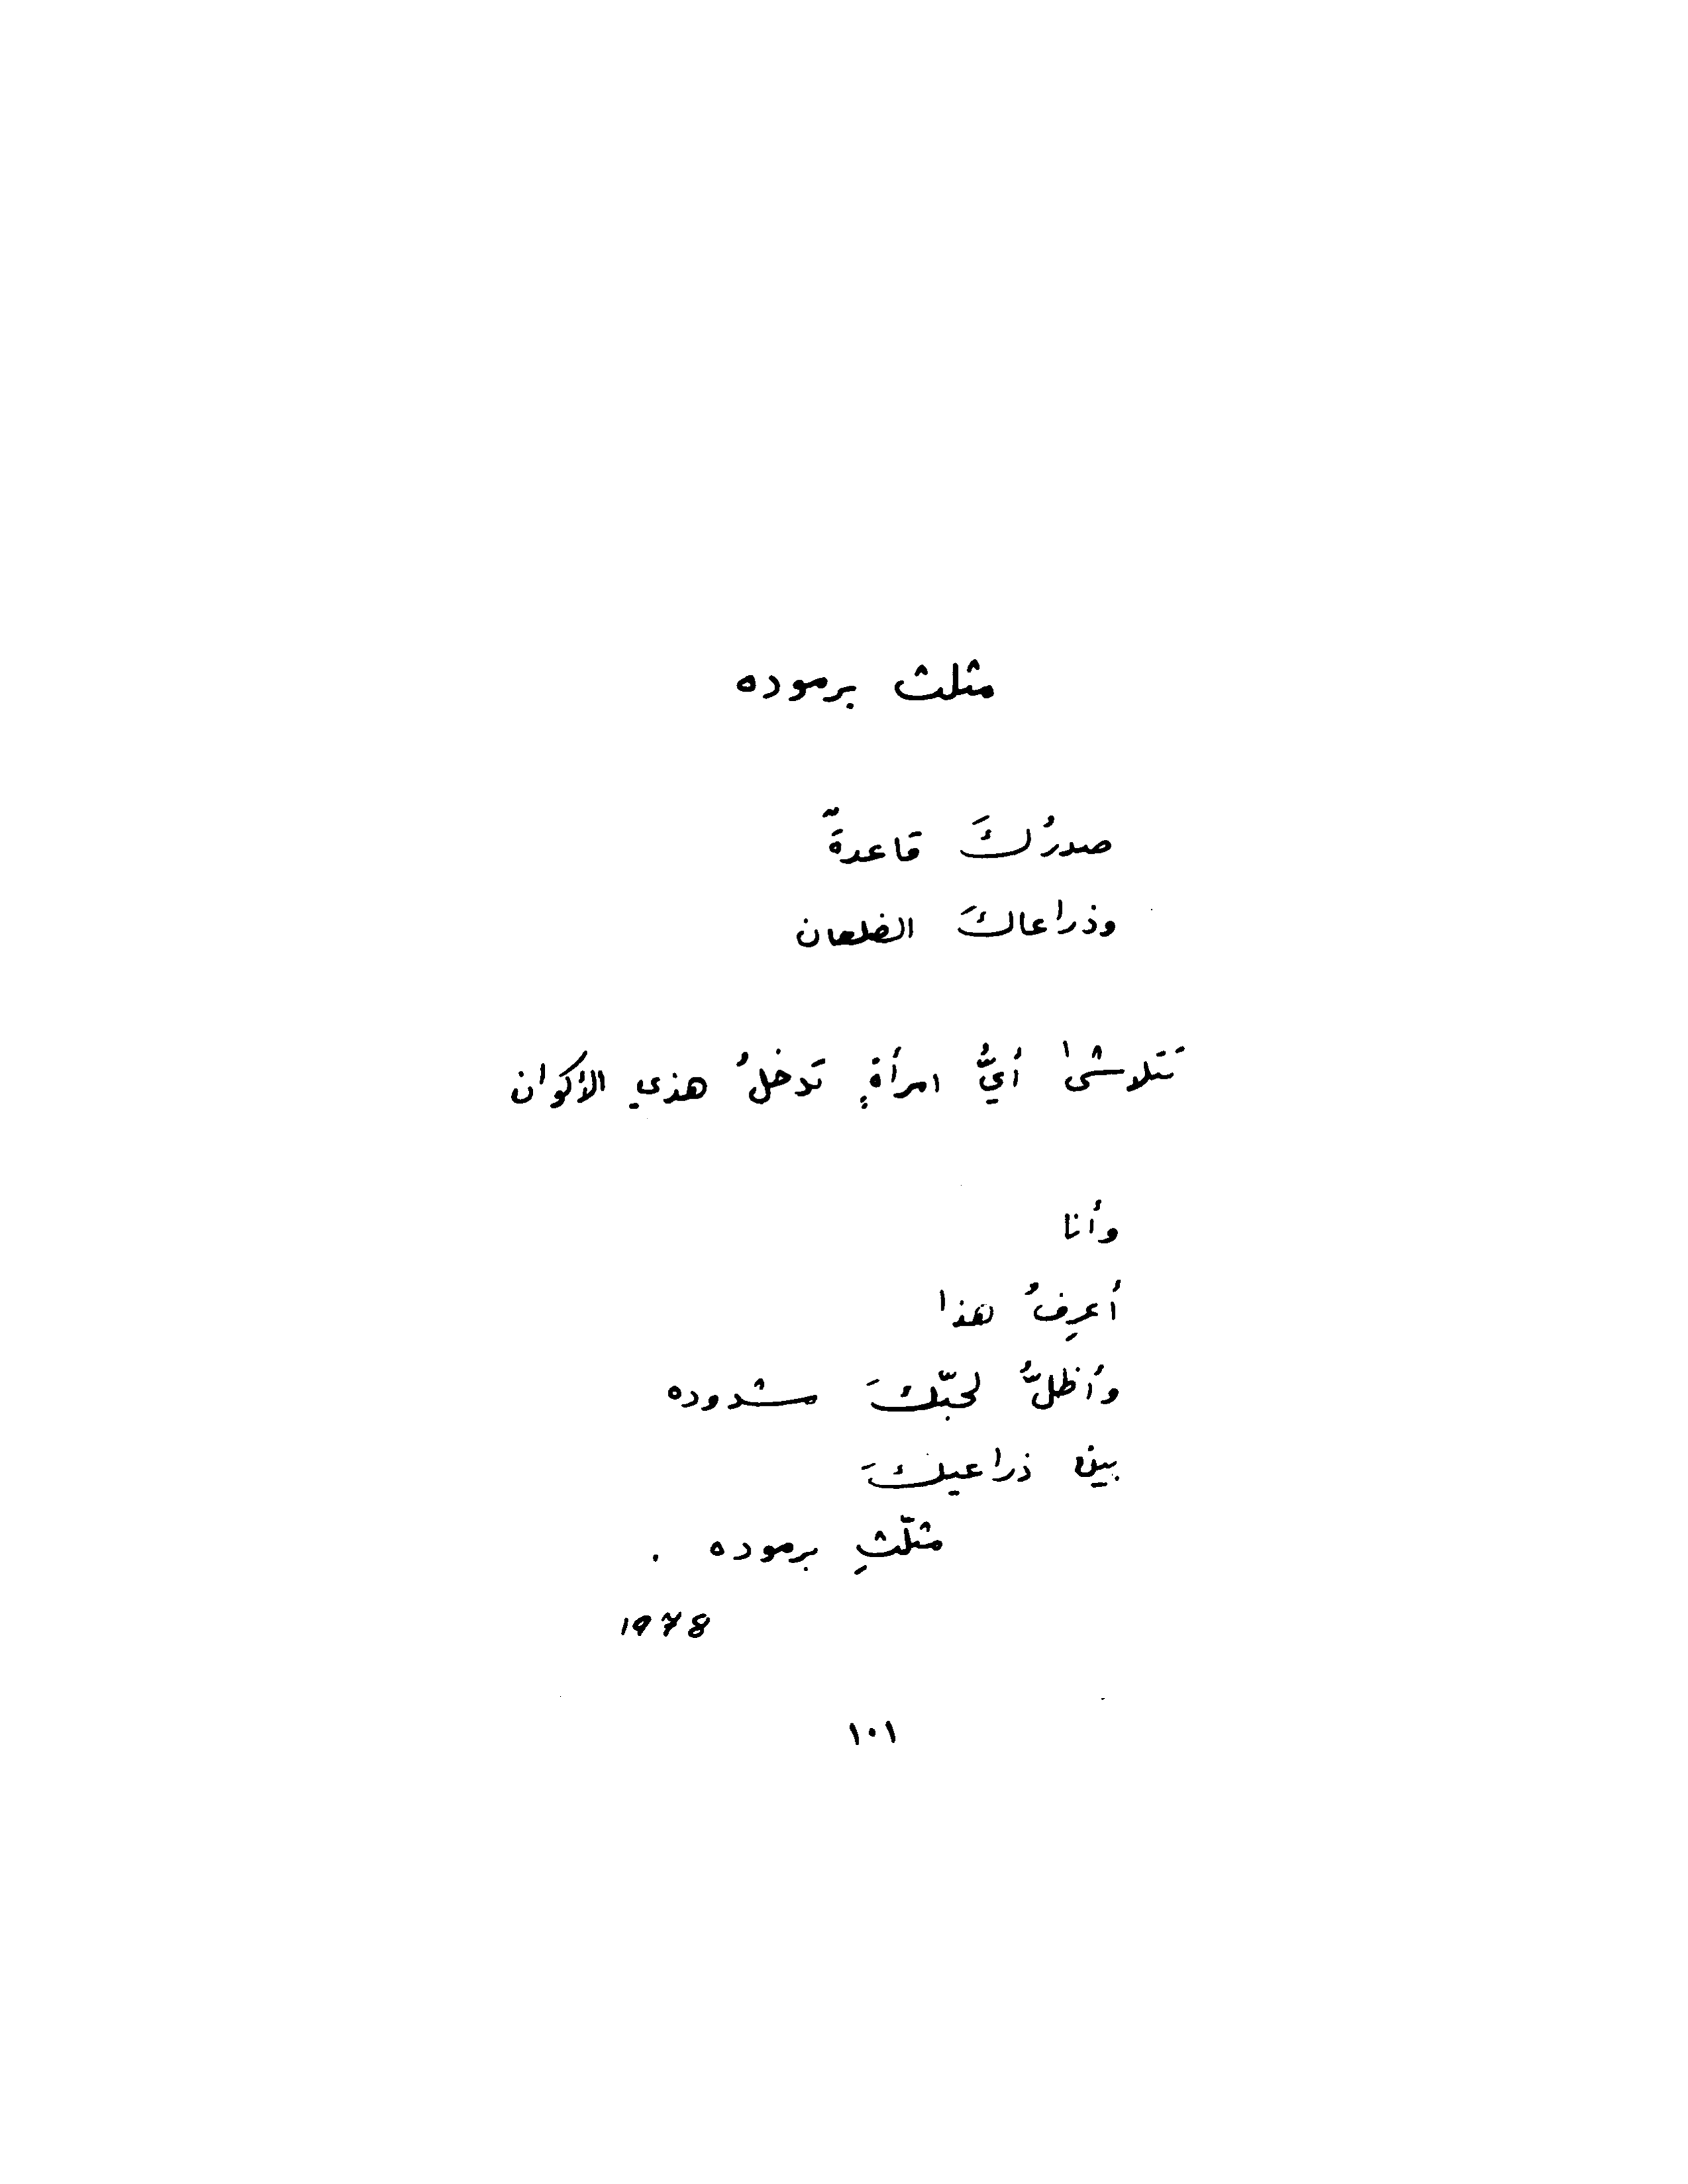 مثلث برموده
صدرُكَ قاعدةٌ
وذراعاكَ الضلعان
تَتلاشىٰ أيُّ امرأةٍ تَدخلُ هذي الأكوان
وأنا
أعرِفُ هذا
وأظلُّ لحبّكَ مشدوده
بين ذراعيكَ
مثلّثِ برموده .
1978
١٠١